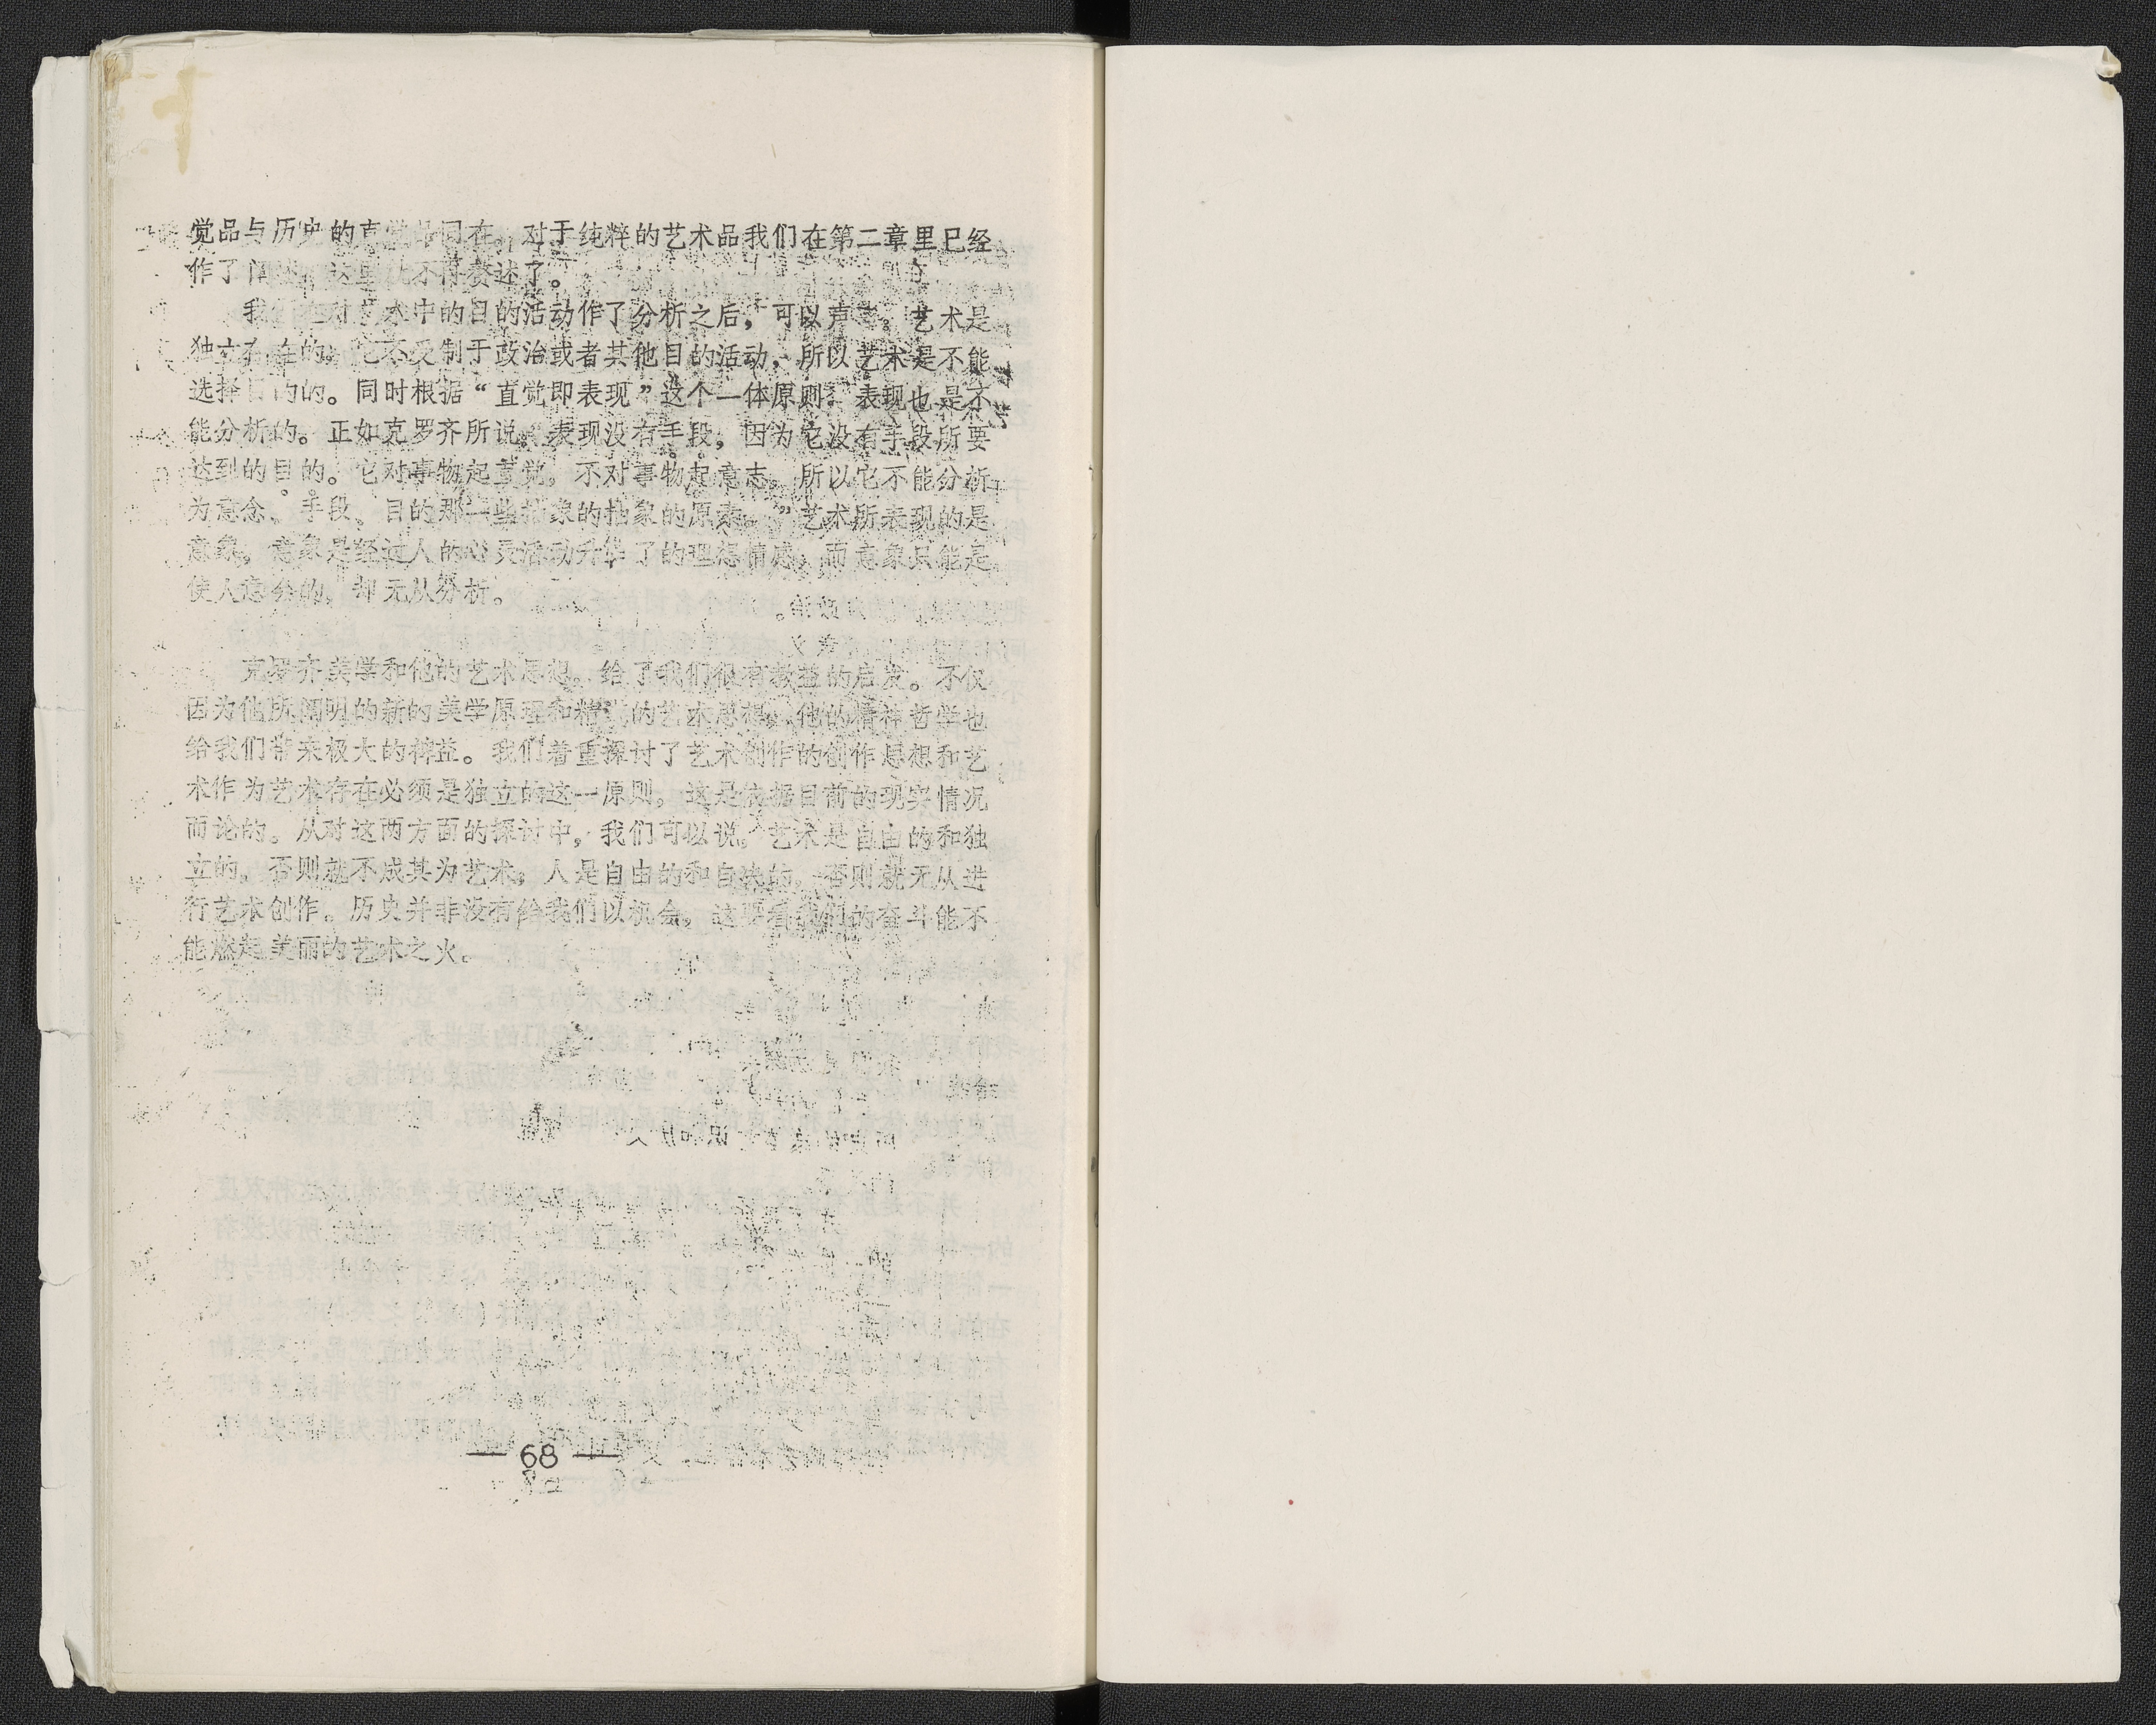 觉品与历史的直觉品同在。对于纯粹的艺术品我们在第二章里已经
作了阐述，这里就不再赘述了。
我们在对艺术中的目的活动作了分析之后，可以声言，艺术是
独立存在的。它不受制于政治或者其他目的活动，所以艺术是不能
选择目的的。同时根据“直觉即表现”这个一体原则，表现也是不
能分析的。正如克罗齐所说，“表现没有手段，因为它没有手段所要
达到的目的。它对事物起直觉，不对事物起意志，所以它不能分析
为意念、手段、目的那一些抽象的抽象的原素。”艺术所表现的是
意象，意象是经过人的心灵活动升华了的理想情感，而意象只能是
使人意会的，却无从分析。
克罗齐美学和他的艺术思想，给了我们很有教益的启发。不仅
因为他所阐明的新的美学原理和精 的艺术思想，他的精神哲学也
给我们带来极大的裨益。我们着重探讨了艺术创作的创作思想和艺
术作为艺术存在必须是独立的这一原则，这是依据目前的现实情况
而论的。从对这两方面的探讨中，我们可以说，艺术是自由的和独
立的，否则就不成其为艺术；人是自由的和自决的，否则就无从进
行艺术创作。历史并非没有给我们以机会，这要看我们的奋斗能不
能燃起美丽的艺术之火。
— 68 —